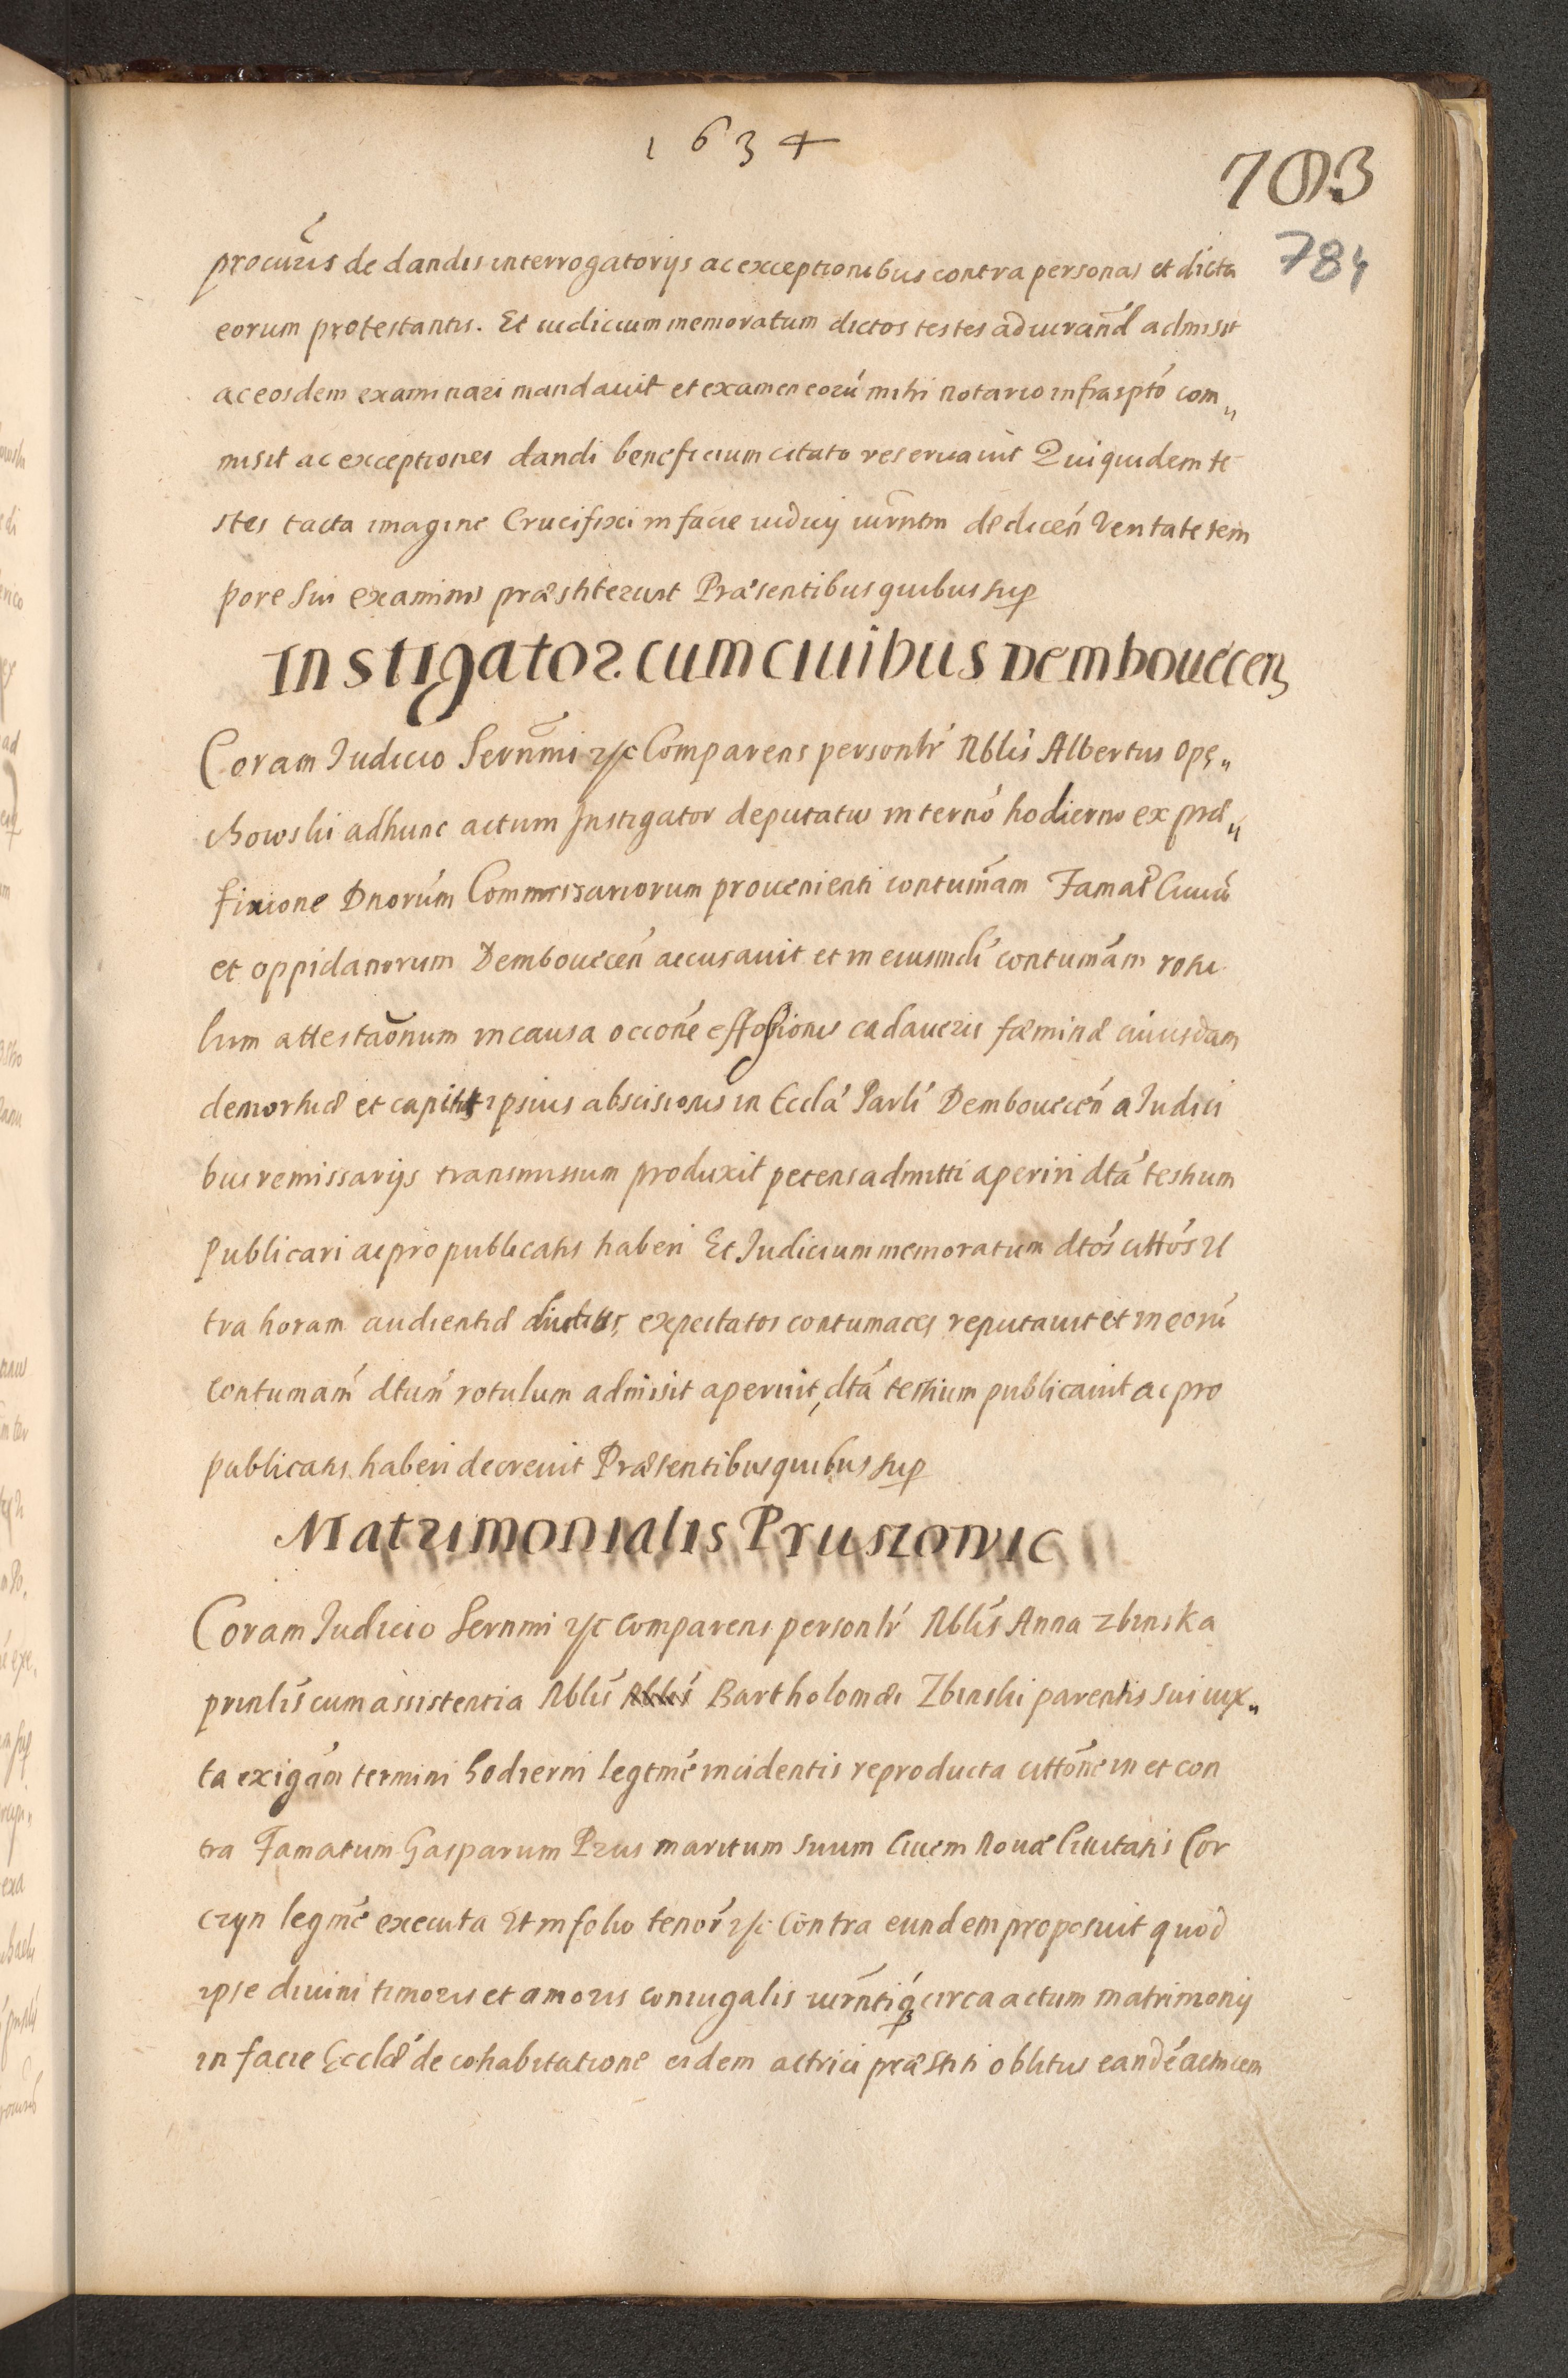 1634
703
784
procuris de dandis interrogatorijs ac exceptionibus contra personas et dicta
eorum protestantis. Et iudicium memoratum dictos testes ad iurand admisit
ac eosdem examinari mandauit et examen eorú mihi notario infraspto com„
misit ac exceptiones dandi beneficium citato reseruauit Qui quidem te
stes tacta imagine Crucifixi in facie iudicij iurntm de dicen veritate tem
pore sui examinis præstiterunt Præsentibus quibus sup
Instigator cum ciuibus Dembouecen
Coram Iudicio Sernmi &c Comparens personlr Nblis Albertus Opę„
chowski ad hunc actum Instigator deputatus in terno hodierno ex præ„
fixione Dnorum Commissariorum prouenienti contumam Famat Ciuiu
et oppidanorum Dembouecen accusauit et in eiusmdi contumam rotu
lum attestaonum in causa occone effossionis cadaueris fæminæ cuiusdam
demortuæ et capitis ipsius abscisionis in Eccla Parli Dembouecen a Iudici
bus remissarijs transmissum produxit petens admitti aperiri dta testium
publicari ac pro publicatis haberi Et Iudicium memoratum dtos cittos Ul
tra horam audientiæ diutius expectatos contumaces reputauit et in eorú
contumam dtum rotulum admisit aperuit, dta testium publicauit ac pro
publicatis haberi decreuit Præsentibus quibus sup
Matrimonialis Pruszowic
Coram Iudicio Sernmi &c Comparens personlr Nblis Anna Zbinska
prinlis cum assistentia Nblis Nblis Bartholomæi Zbinski parentis sui iux„
ta exigam termini hodierni legtme incidentis reproducta cittone in et con
tra Famatum Gasparum Prus maritum suum Ciuem Nouæ Ciuitatis Cor
czyn legme executa Et in folio tenor &c Contra eundem proposuit quod
ipse diuini timoris et amoris coniugalis iurntiq circa actum matrimonij
in facie Ecclæ de cohabitatione eidem actrici præstiti oblitus eandé actricem